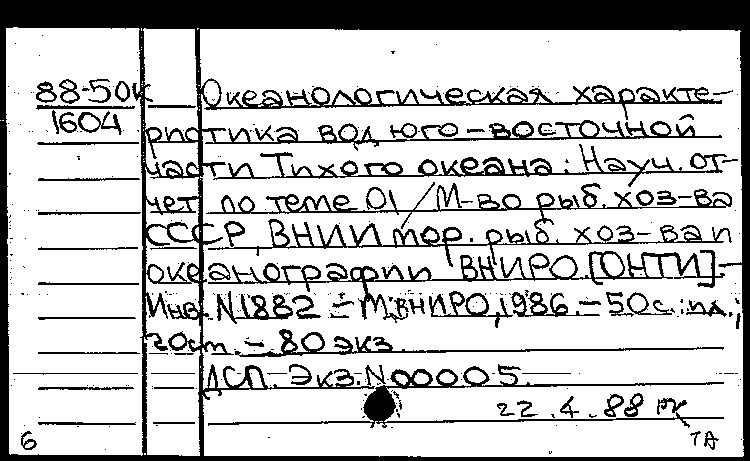 88-50К Океанологическая характе-
1604 ристика вод юго-восточной
части Тихого океана: Науч. от-
чет по теме 01 / М-во рыб. хоз-ва
СССР, ВНИИ мор. рыб. хоз-ва и
океанографии ВНИРО. [ОНТИ].-
Инв. N1882 - М.: ВНИРО, 1986. - 50с.: ил.;
20см. - 80 экз.
ДСП. Экз. N00005.
22.4.88 РК
6 ТА